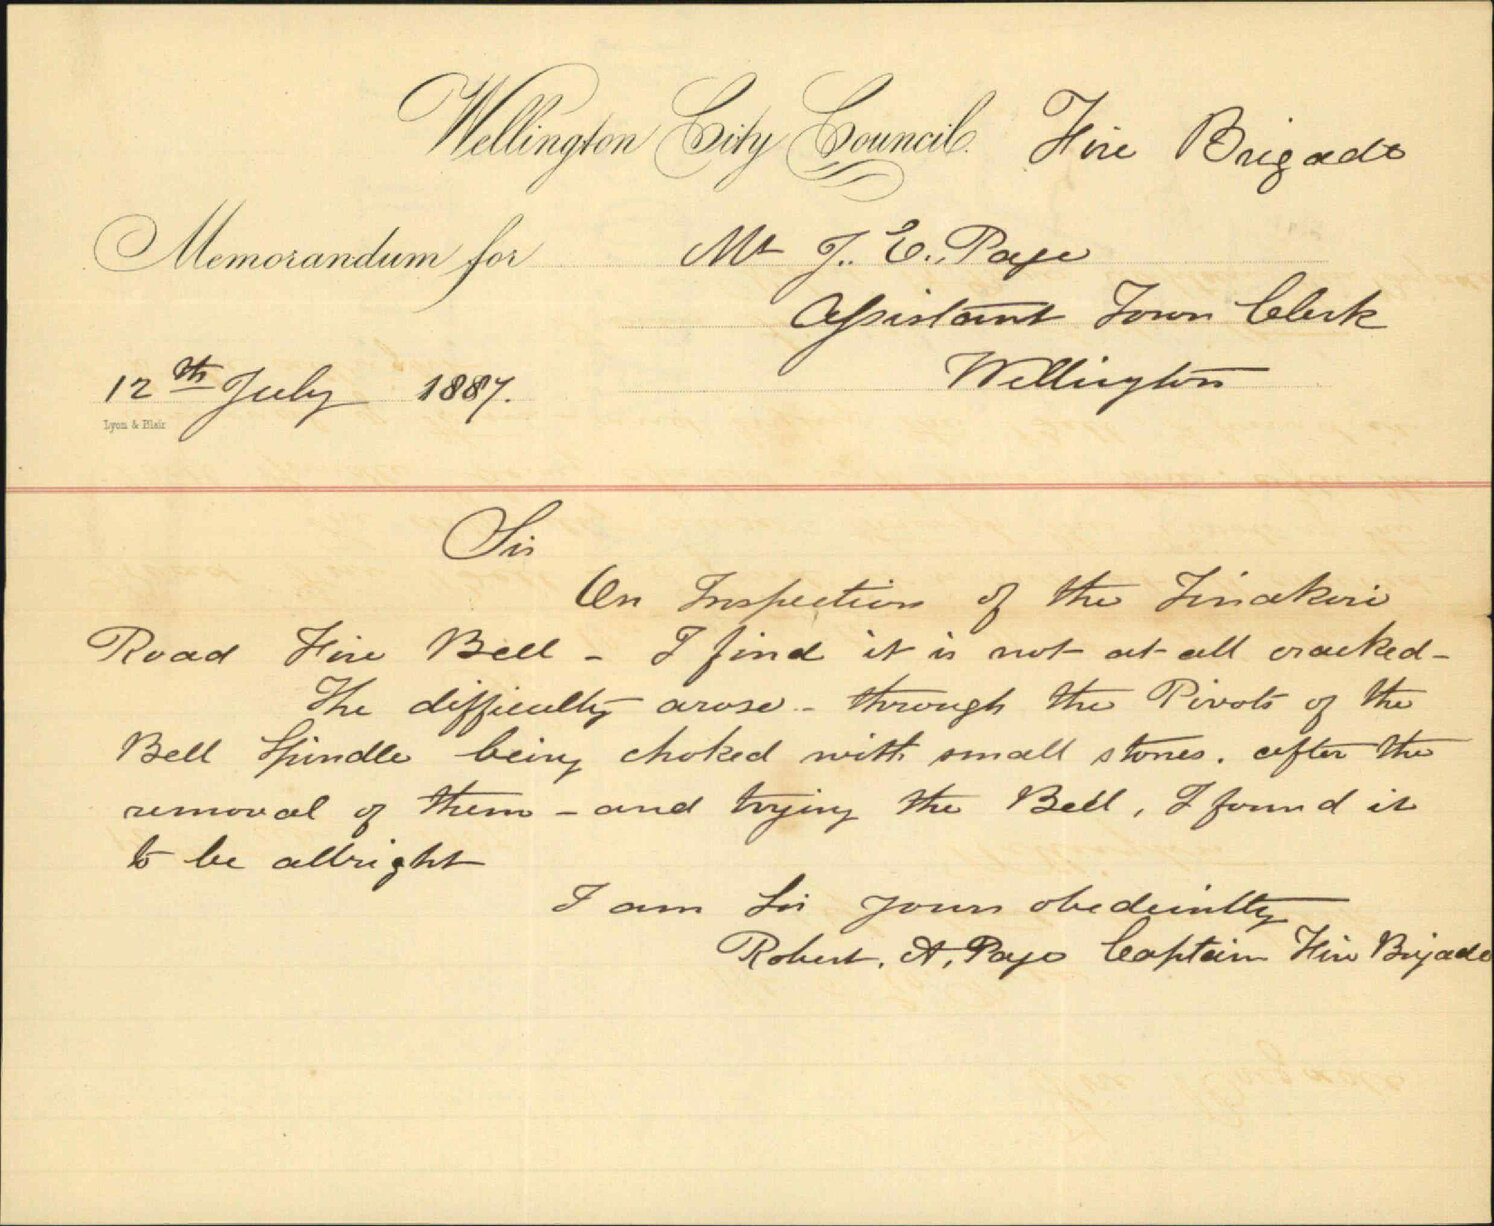 Wellington City Council. Fire Brigade
Memorandum for Mr J. E. Page
Assistant Town Clerk
12th July 1887. Wellington
Lyon & Blair
Sir
On Inspection of the Tinakori
Road Fire Bell - I find it is not at all cracked -
The difficulty arose - through the Pivots of the
Bell Spindle being choked with small stones. after the
removal of them - and trying the Bell, I found it
to be allright
I am Sir yours obediently
Robert. A. Page Captain Fire Brigade